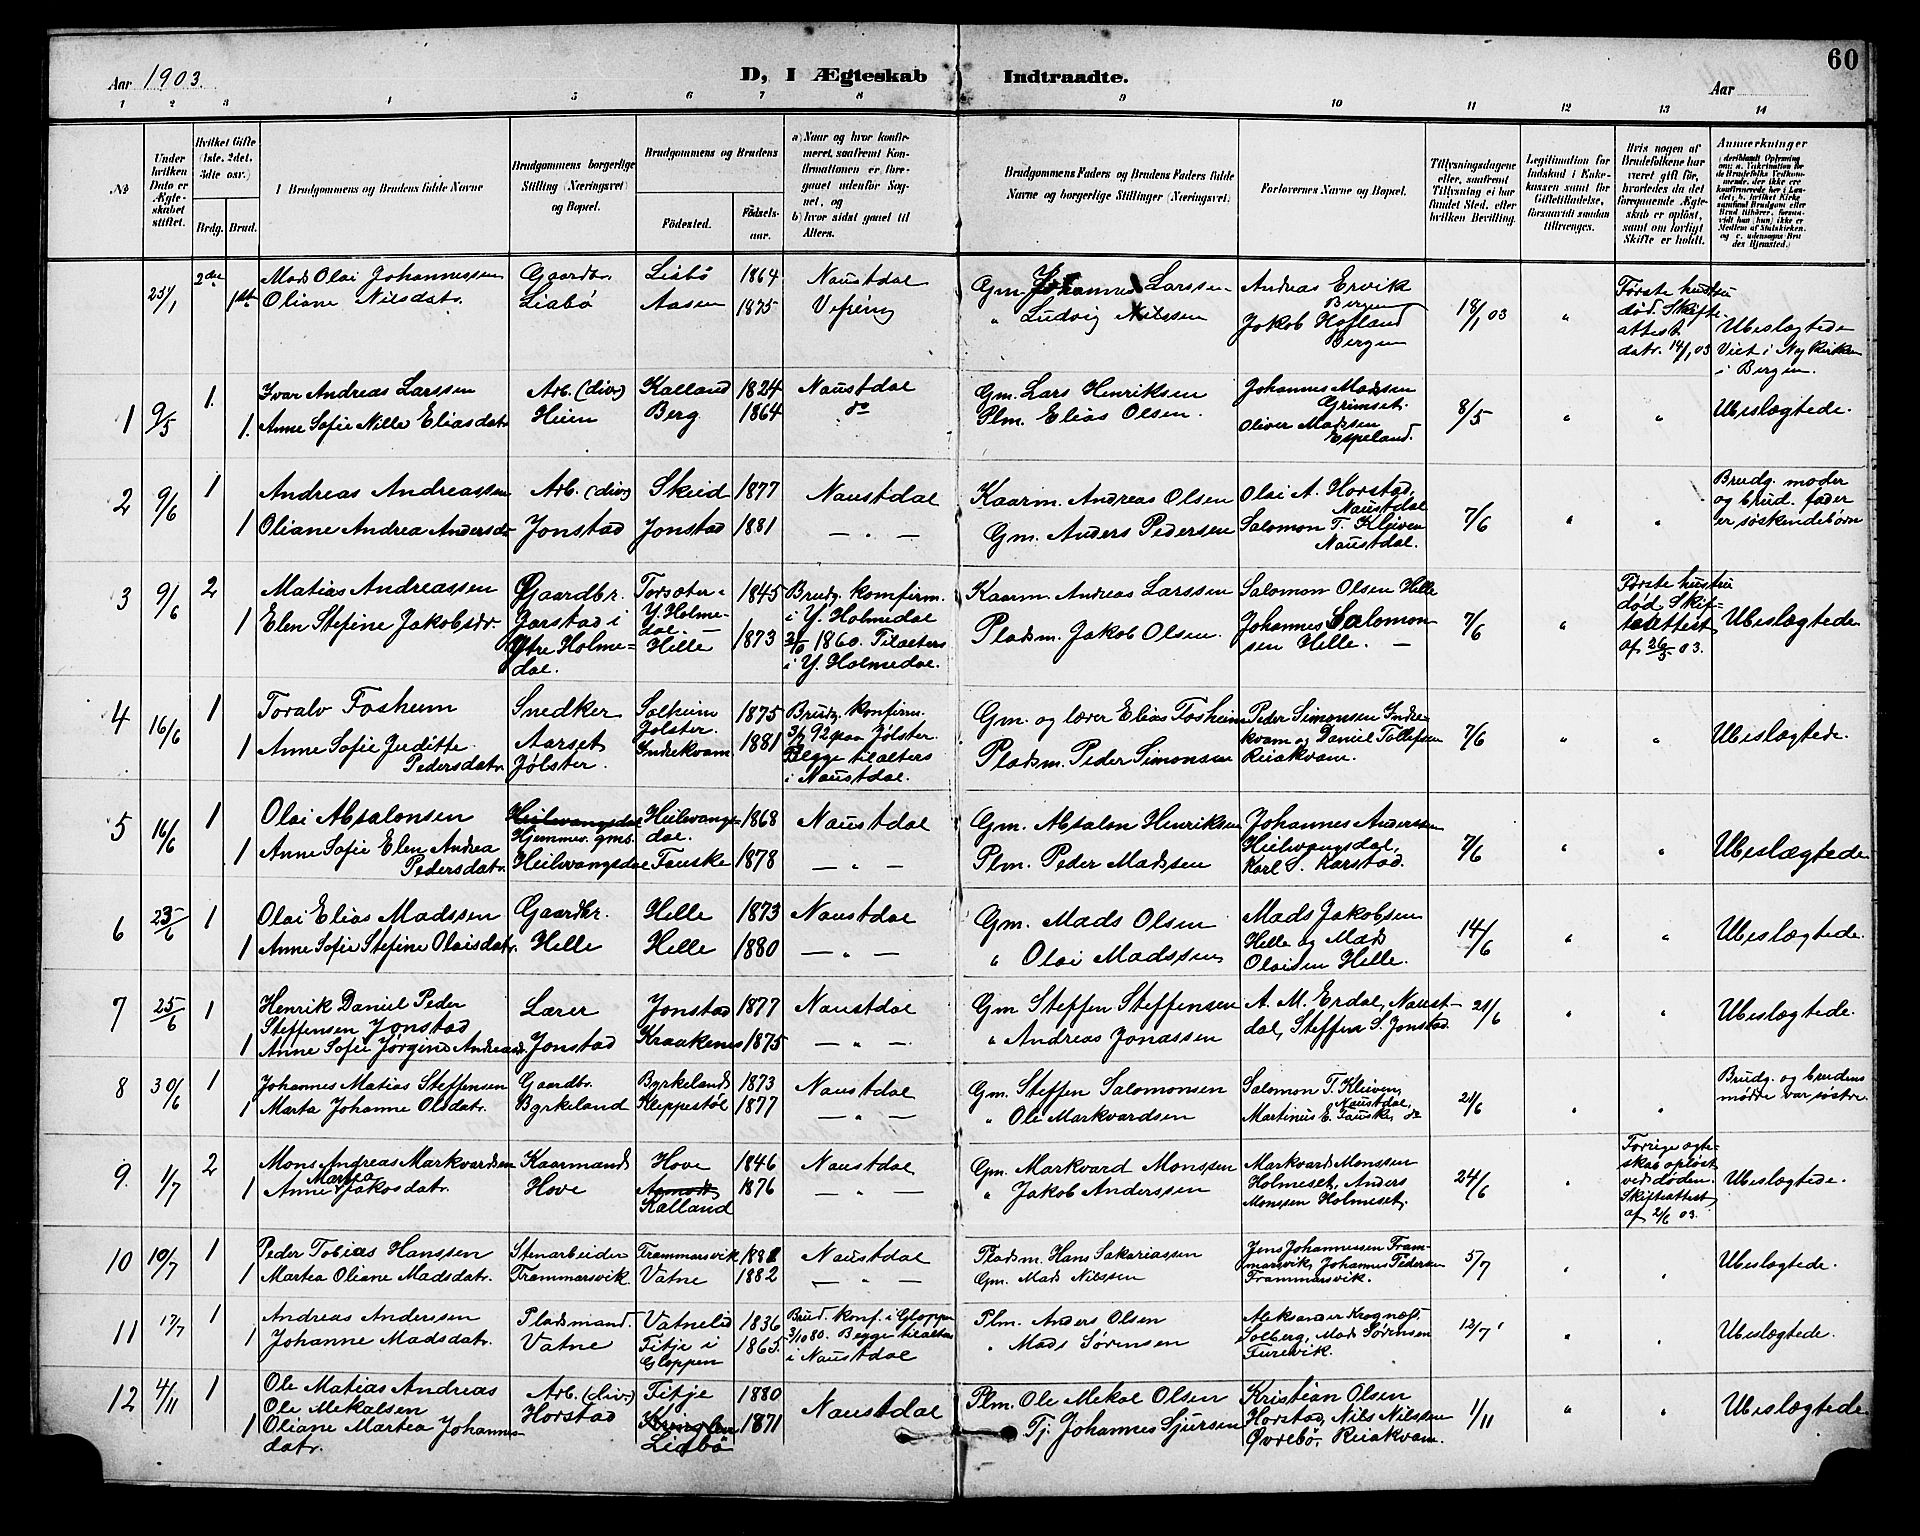 60
Aar 1903.
D, I Ægteskab Indtraadte.
Aar
1 2 3 4 5 6 7 8 9 10 11 12 13 14
No
Under hvilken Dato er Ægteskabet stiftet.
Hvilket Gifte (1ste, 2det, 3die osv.)
Brdg. Brud.
Brudgommens og Brudens fulde Navne
Brudgommens borgerlige Stilling (Næringsvei) og Bopæl.
Brudgommens og Brudens
Fødested.
Fødselsaar.
a) Naar og hvor konfirmeret, saafremt Konfirmationen er foregaaet udenfor Sognet, og
b) hvor sidst gaaet til Alters.
Brudgommens Faders og Brudens Faders fulde Navne og borgerlige Stillinger (Næringsvei.)
Forlovernes Navne og Bopæl.
Tillysningsdagene eller, saafremt Tillysning ei har fundet Sted, efter hvilken Bevilling.
Legitimation for Indskud i Enkekassen samt for Giftetilladelse, forsaavidt saadan tiltrænges.
Hvis nogen af Brudefolkene har været gift før, hvorledes da det foregaaende Ægteskab er opløst, samt om lovligt Skifte er holdt.
Anmerkninger
25/1 2den Mads Olai Johannessen Gaardbr. Liabö 1864 Naustdal Gm. Johannes Larssen Andreas Ervik Bergen 18/1 03 " Første hustru död. Skifteattest datr. 14/1 03
1ste Oliane Nilsdatr. Liabö Aasen 1875 Vefring " Ludvig Nilssen Jakob Hofland Bergen Ubeslægtede Viet i Nykirken i Bergen.
1 9/5 1. Ivar Andreas Larssen Arb. (div) Kalland 1824 Naustdal Gm. Lars Henriksen Johannes Madssen Grimset. 8/5 " " Ubeslægtede.
1. Anne Sofie Nille Eliasdatr Heien Berg 1864 do Plm. Elias Olsen. Oliver Madssen Espeland.
2 9/6 1 Andreas Andreassen Arb. (div) Skeid 1877 Naustdal Kaarm. Andreas Olsen Olai A. Horstad, Naustdal 7/6 " " Brudg. moder og brud. fader er søskendebörn
1 Oliane Andrea Andersdr Jonstad Jonstad 1881 — " — Gm. Anders Pedersen Salomon T. Kleiven Naustdal.
3 9/6 2 Matias Andreassen Gaardbr. 1845 Brudg. konfirm. i Y. Holmedal Kaarm. Andreas Larssen Salomon Olsen Helle 7/6 " Første hustru död. Skifteattest af 26/5 03. Ubeslægtede
1 Elen Stefine Jakobsdr. Garstad i Ytre Holmedal. Y. Holmedal. — Helle 1873 1860. Tilalters i Y. Holmedal. Pladsm. Jakob Olsen. Johannes Salomonsen Helle. —
4 16/6 1 Toralv Fosheim Snedker Solheim Jölster. 1875 Brudg. konfirm. 3/7 92 paa Jölster. Gm. og lærer Elias Fosheim Peder Simonsen Indrekvam og Daniel Tollefsen Reiakvam. 7/6 " " Ubeslægtede.
1 Anne Sofie Juditte Pedersdatr. Aarset Jölster. Indrekvam 1881 Begge tilalters i Naustdal. Pladsm. Peder Simonsen
5 16/6 1 Olai Absalonsen Hjemmev. gms. Heilevangsdal. 1868 Naustdal Gm. Absalon Henriksen Johannes Anderssen Heilevangsdal, Karl S. Karstad. 7/6 " " Ubeslægtede
1 Anne Sofie Elen Andrea Pedersdatr. Heilevangsdal Fauske 1878 — " — Plm. Peder Madssen
6 23/6 1 Olai Elias Madssen Gaardbr. Helle 1873 Naustdal Gm. Mads Olsen Mads Jakobsen Helle og Mads Olaisen Helle. 14/6 " " Ubeslægtede.
1 Anne Sofie Stefine Olaisdatr. Helle Helle 1880 — " — " Olai Madssen
7 25/6 1 Henrik Daniel Peder Steffensen Jonstad Lærer Jonstad 1877 Naustdal Gm Steffen Steffensen A. M. Erdal, Naustdal, Steffen S. Jonstad. 21/6 " " Ubeslægtede.
1 Anne Sofie Jörgine Andreasd. Jonstad Kraakenes 1875 — " — " Andreas Jonassen
8 30/6 1 Johannes Matias Steffensen Gaardbr. Byrkeland 1873 Naustdal Gm Steffen Salomonsen Salomon T. Kleiven, Naustdal, 21/6 " " Brudg. og brudens mödre var söstre
1 Marta Johanne Olsdatr. Byrkeland Kleppestöl 1877 — " — " Ole Markvardsen Martinus E. Fauske, do
9. 1/7 2 Mons Andreas Markvardsen Kaarmand Hove 1846 Naustdal Gm. Markvard Monssen Markvard Monssen Holmeset, Anders Monssen Holmeset, 24/6 " Forrige ægteskab opløst ved döden. Skifteattest af 2/6 03. Ubeslægtede.
1 Anne Martea Jakobsdatr. Hove Kalland 1876 — " — " Jakob Anderssen
10 10/7 1 Peder Tobias Hanssen Stenarbeider Frammarsvik 1881 Naustdal Pladsm. Hans Sakariassen Jens Johannessen Frammarsvik, Johannes Pedersen Frammarsvik. 5/7 " " Ubeslægtede.
1 Martea Oliane Madsdatr. Frammarsvik Vatne 1882 — " — Gm. Mads Nilssen
11 17/7 1 Andreas Andersen Pladsmand. Vatnelid 1836 Brud. konf. i Gloppen 3/10 80. Begge tilalters i Naustdal Plm. Anders Olsen Aleksander Krognæs, Solberg, Mads Sörensen Furevik. 12/7 " " Ubeslægtede.
1 Johanne Madsdatr. Vatne Fitje i Gloppen 1865. " Mads Sörensen
12 4/11 1 Ole Matias Andreas Ole Mekalsen Arb. (div.) Fitje 1880 Naustdal Plm. Ole Mekal Olsen Kristian Olsen Horstad, Nils Nilssen Övrebö, Reiakvam. 1/11 " " Ubeslægtede
1 Oliane Martea Johannesdatr. Horstad Liabö 1871 Tj. Johannes Sjursen